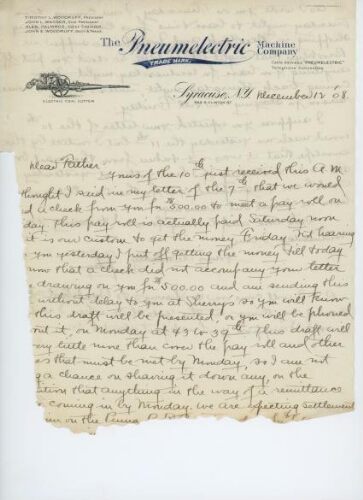 TIMOTHY L. WOODRUFF, PRESIDENT
JOHN L. WAGNER, VICE PRESIDENT
ALEX. PALMROS, SECY. TREASR.
The Pneumelectric Machine Company
TRADE MARK
ELECTRIC COAL CUTTER
Syracuse, N.Y. December 12 '08
Dear Father
Yours of the 10th just received this A.M.
thought I said in my letter of the 7th that we would
d a check from you for $500.00 to meet a pay roll on
day this pay roll is actually paid Saturday noon
it is our custom to get the money Friday. Not having
you yesterday I put off getting the money till today
now that a check did not accompany your letter
drawing on you for $500.00 and am sending this
without delay to you at Sherrys so you will know
this draft will be presented, or you will be phoned
out it, on Monday at 43 to 39th This draft will
very little more than cover the pay roll and other
es that must be met by Monday, so I am not
g a chance on shaving it down any, on the
tion that anything in the way of a remittances
coming in by Monday. We are expecting settlement
on the